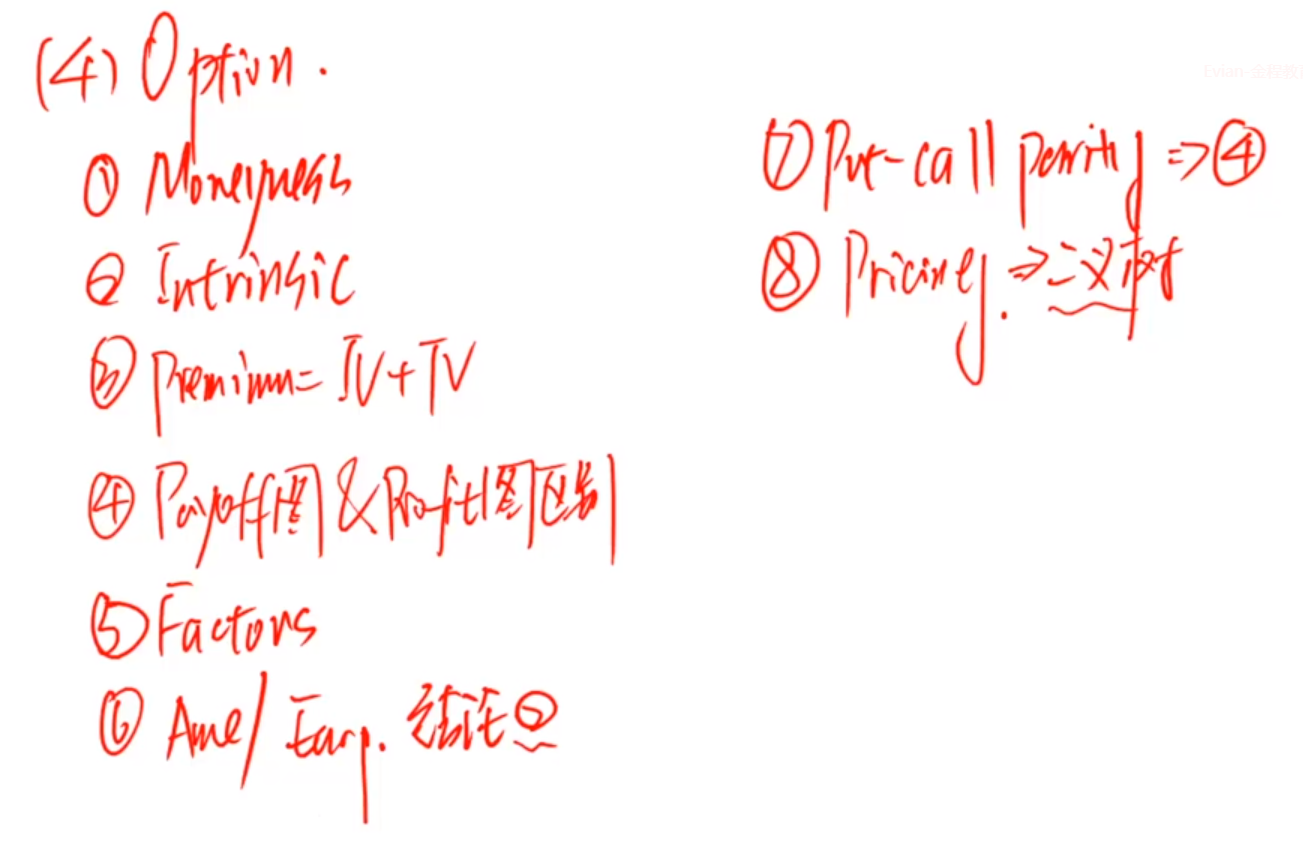 (4) Option.
① Moneyness
② Intrinsic
③ Premium = IV + TV
④ Payoff图 & Profit图区别
⑤ Factors
⑥ Ame/Eurp. 结论②
⑦ Put-call parity ⇒ ④
⑧ Pricing. ⇒ 二叉树
Evian-金程教